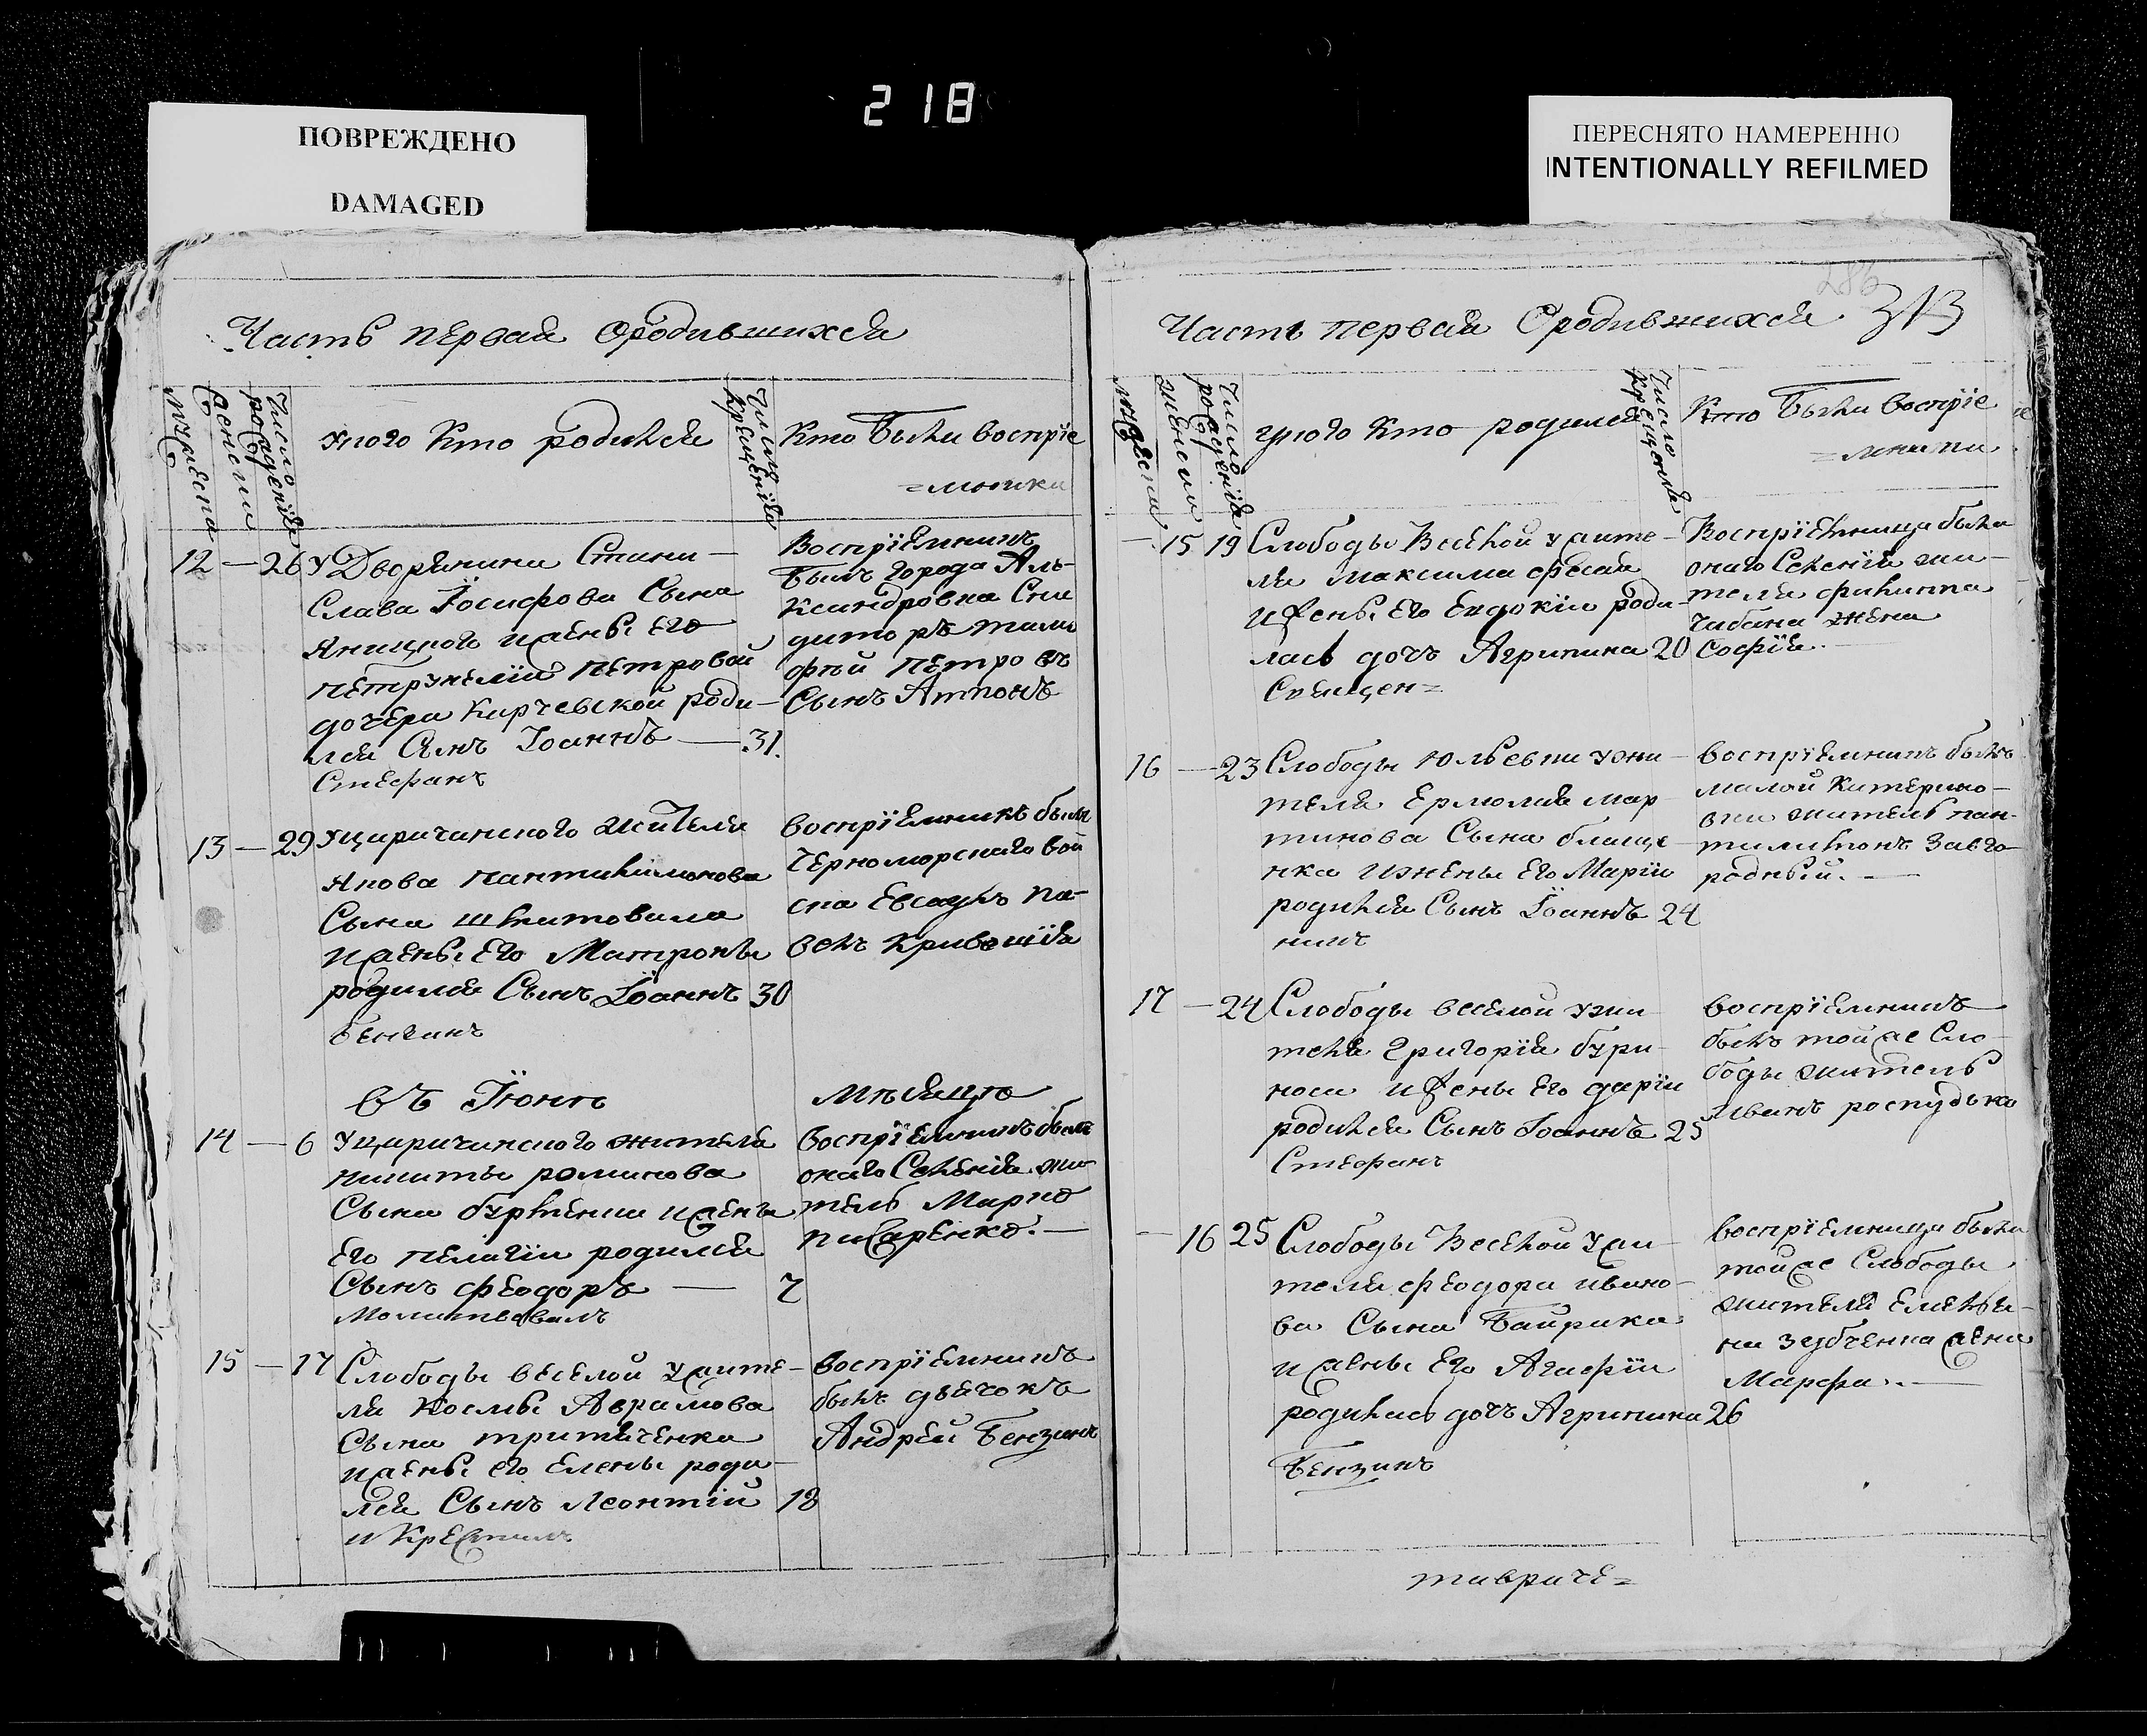 218
ПОВРЕЖДЕНО
DAMAGED
ПЕРЕСНЯТО НАМЕРЕННО
INTENTIONALLY REFILMED
Часть первая Ородившихся
мужеска
женски
Число рождения
Укого Кто родился
Число крещения
Кто Были воспріе
=мники
12 — 26 У Дворянина Стани-
Слава Іосифова Сына
Яницкого ижены Его
петрунелїи петровой
дочери Кирчевской роди-
лся Сынъ Іоаннъ — 31.
Стефанъ
Воспріемникъ
Былъ города Але-
ксандровка
петровъ
Сынъ Антонъ
13 — 29 Уцаричанского жителя
Якова пантилимонова
Сына
ижены Его Матроны
родился Сынъ Іоаннъ 30
Бензинъ
воспріемникъ былъ
Черноморскаго вой
ска Есаулъ па-
велъ Кривошїя
Въ Іюнѣ
Мѣсяцѣ
14 — 6 Уцаричанского жителя
никиты романова
Сына ижены
Его пелагїи родился
Сынъ феодоръ — 7
Молитвовалъ
воспріемникъ былъ
онаго Селенія жи-
тель Марко
писаренко. —
15 — 17 Слободы веселой ужите-
ля Космы Аврамова
Сына
ижены его Елены роди-
лся Сынъ Леонтій 18
и Крестилъ
воспріемникъ
былъ дьячокъ
Андрей Бензинъ
286
313
Часть первая Ородившихся
мужеска
женски
Число рождения
Укого Кто родился
Число крещения
Кто Были воспріе
=мники
— 15 19 Слободы Веселой ужите-
ля Максима
ижены Его Евдокїи роди-
лась дочь Агрипина 20
Священ=
Воспріемница была
онаго Селенія жи-
теля филипа
жена
Софія. —
16 — 23 Слободы Юльевки ужи-
теля Ермолая мар
тинова Сына блаще-
нка ижены Его Маріи
родился Сынъ Іоаннъ 24
никъ
воспріемникъ былъ
малой Катерино-
вки житель пан-
тилимонъ Завго-
родный. —
17 — 24 Слободы веселой ужи
теля григорія бури-
носи ижены Его дарїи
родился Сынъ Іоаннъ 25
Стефанъ
воспріемникъ
былъ той же Сло-
боды житель
Иванъ роспудько
— 16 25 Слободы Веселой ужи-
теля феодора ивано-
ва Сына Байрика
ижены Его Агафїи
родилась дочь Агрипина 26
Бензинъ
воспріемница была
той же Слободы
жителя Емелья-
на зубченка жена
Марфа. —
тавриче=